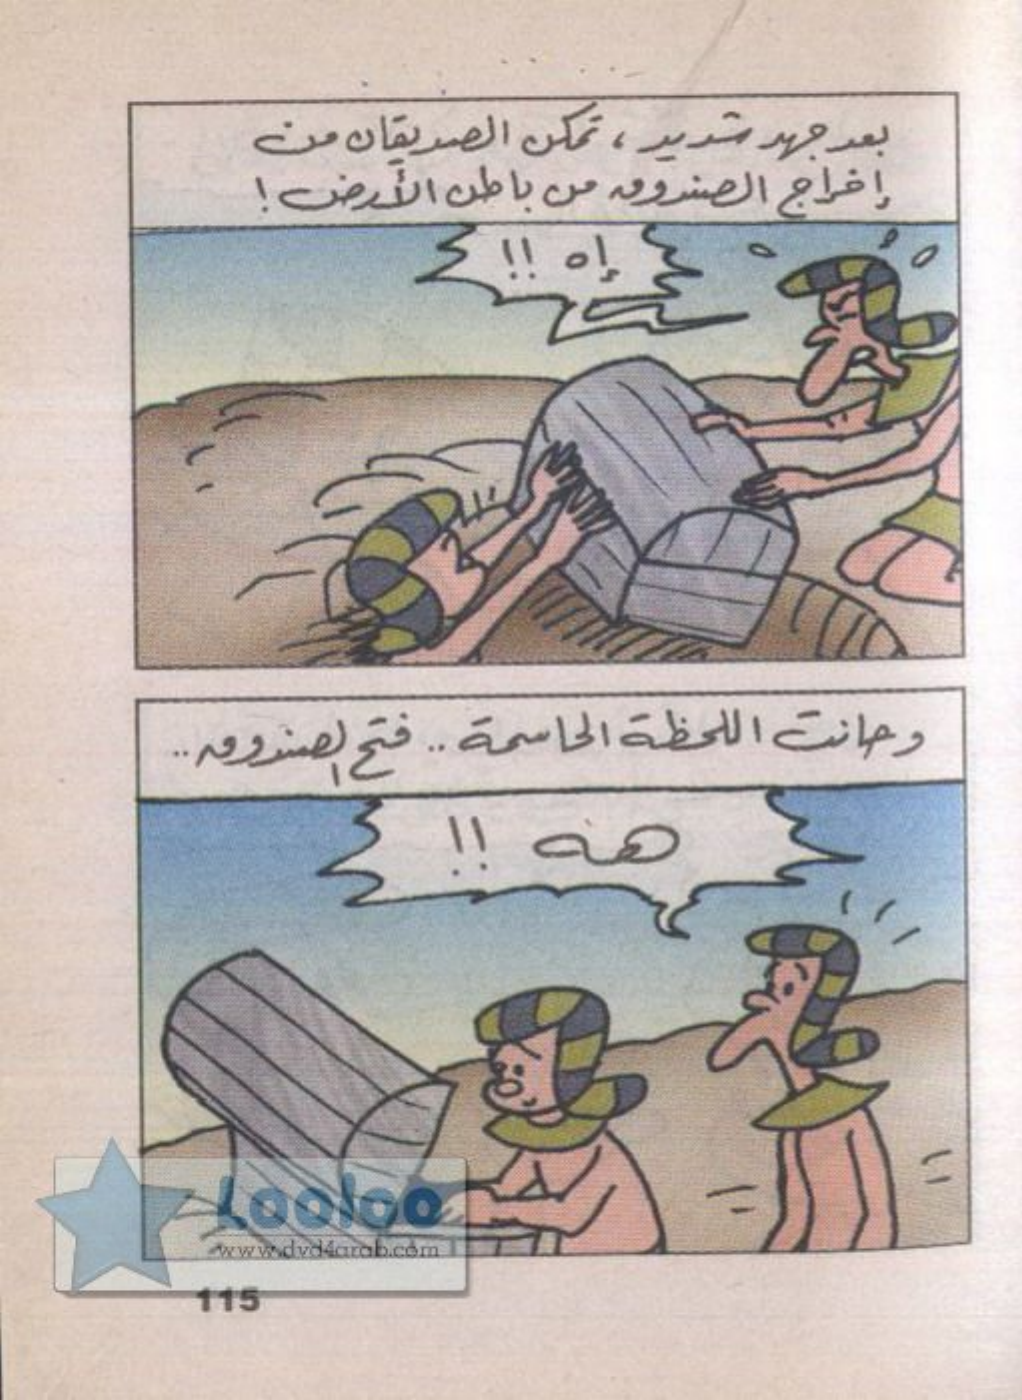 بعد جهد شديد ، تمكن الصديقان من
إخراج الصندوق من باطن الأرض !
إه !!
وحانت اللحظة الحاسمة .. فتح الصندوق ..
هه !!
Looloo
www.dvd4arab.com
115